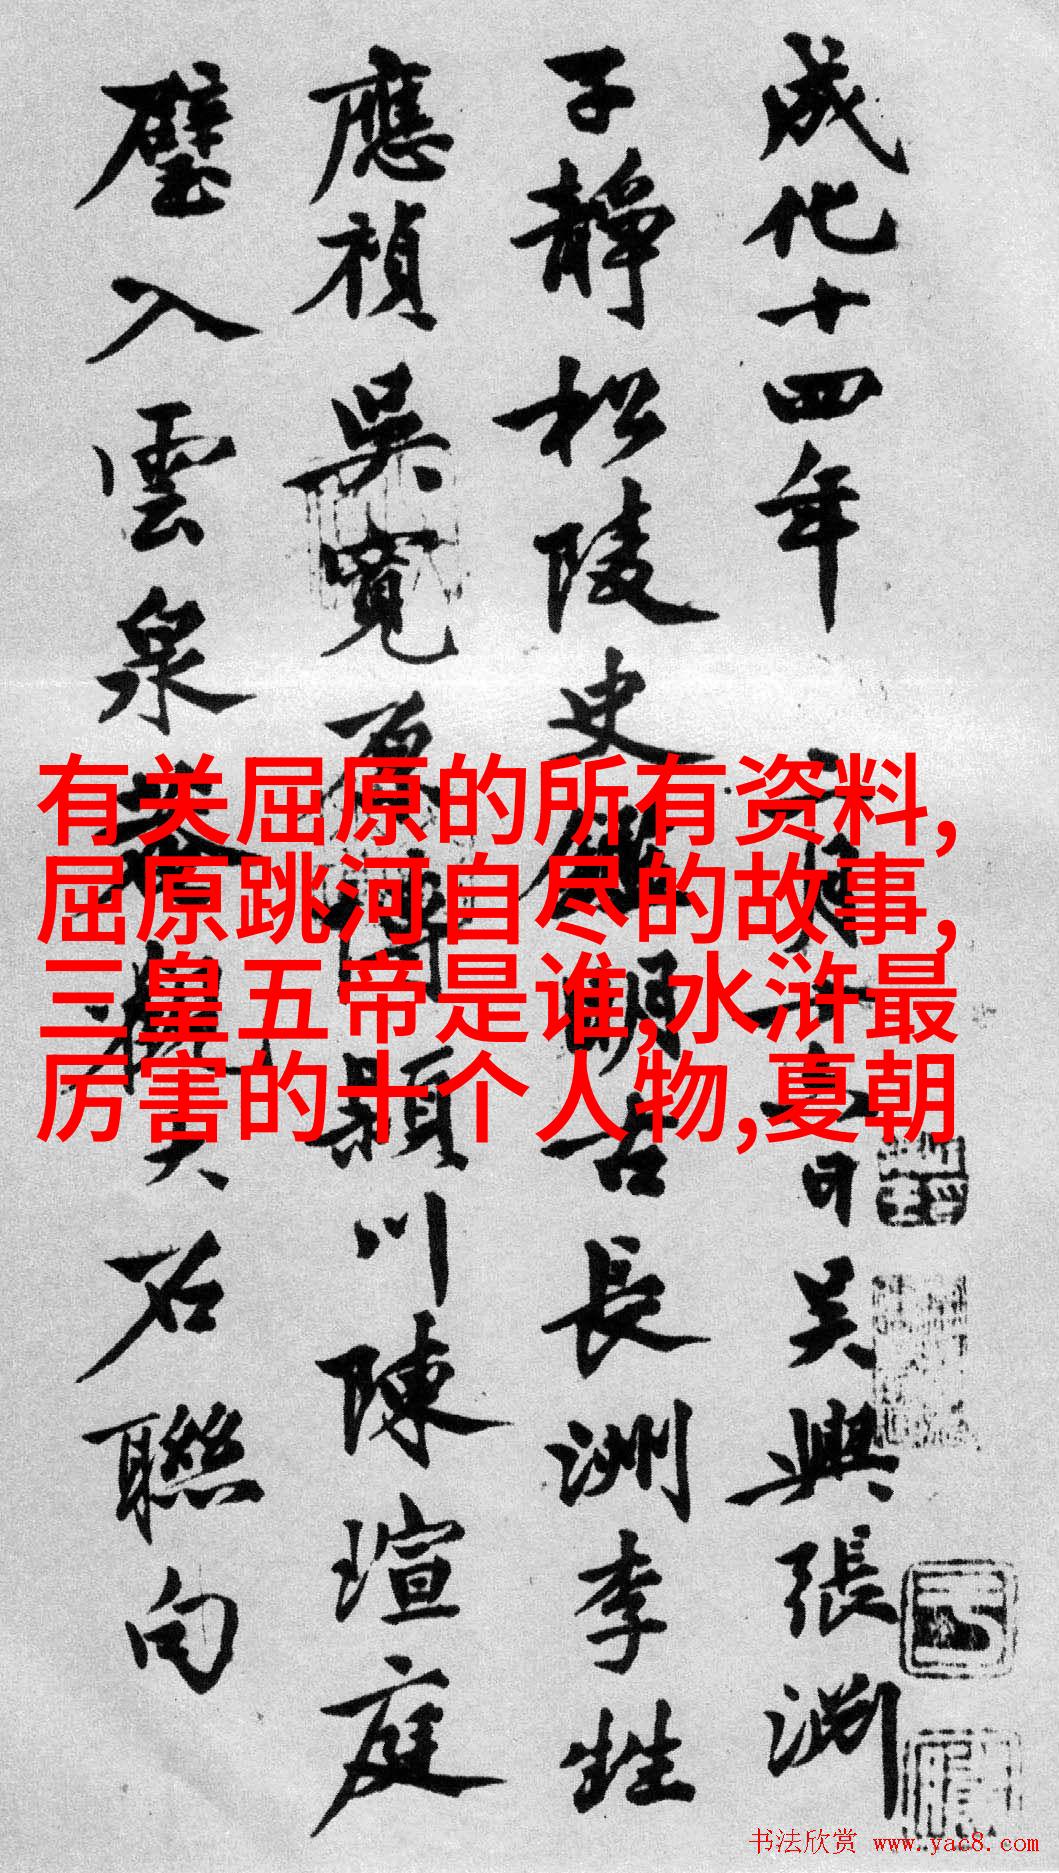 成化十四年
日吴興張渊
子静松陵史
古長洲李甡
應禎吴寬
川陳瑄庭
璧入雲泉
石聯句
有关屈原的所有资料,
屈原跳河自尽的故事,
三皇五帝是谁,水浒最
厉害的十个人物,夏朝
书法欣赏 www.yac8.com